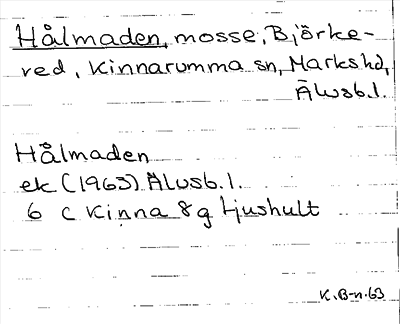 Hålmaden, mosse, Björke-
red, Kinnarumma sn, Marks hd,
Älvsb.l.
Hålmaden
ek (1963) Älvsb.l.
6 c Kinna 8g Ljushult
K.B-n.63